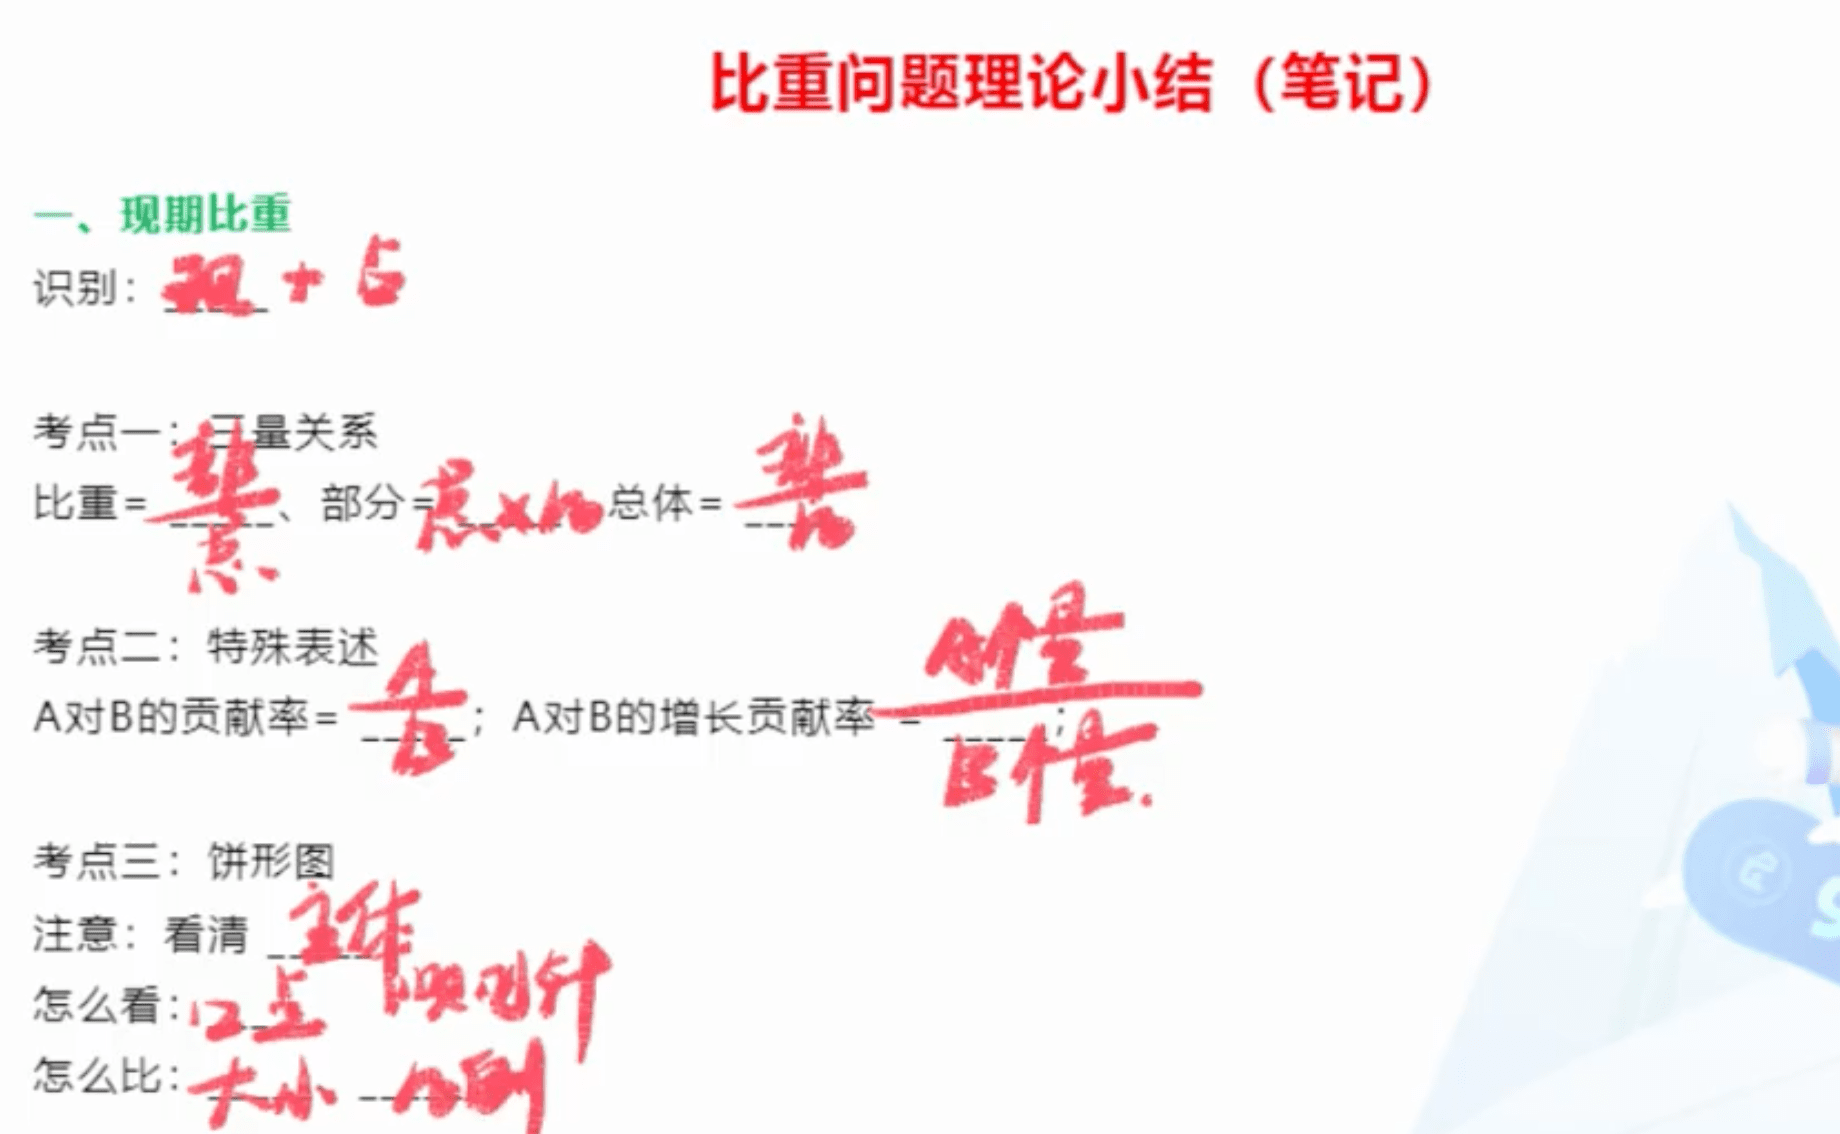 比重问题理论小结（笔记）
一、现期比重
识别：现+占
考点一：三量关系
比重=部/总、部分=总×比 总体=部/比
考点二：特殊表述
A对B的贡献率=A/B；A对B的增长贡献率=A增量/B增量；
考点三：饼形图
注意：看清 主体
怎么看：12点 顺时针
怎么比：大小 比例